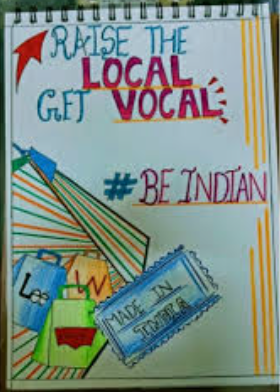 RAISE THE
LOCAL
GET VOCAL
# BE INDIAN
Lee
W
MADE IN
INDIA